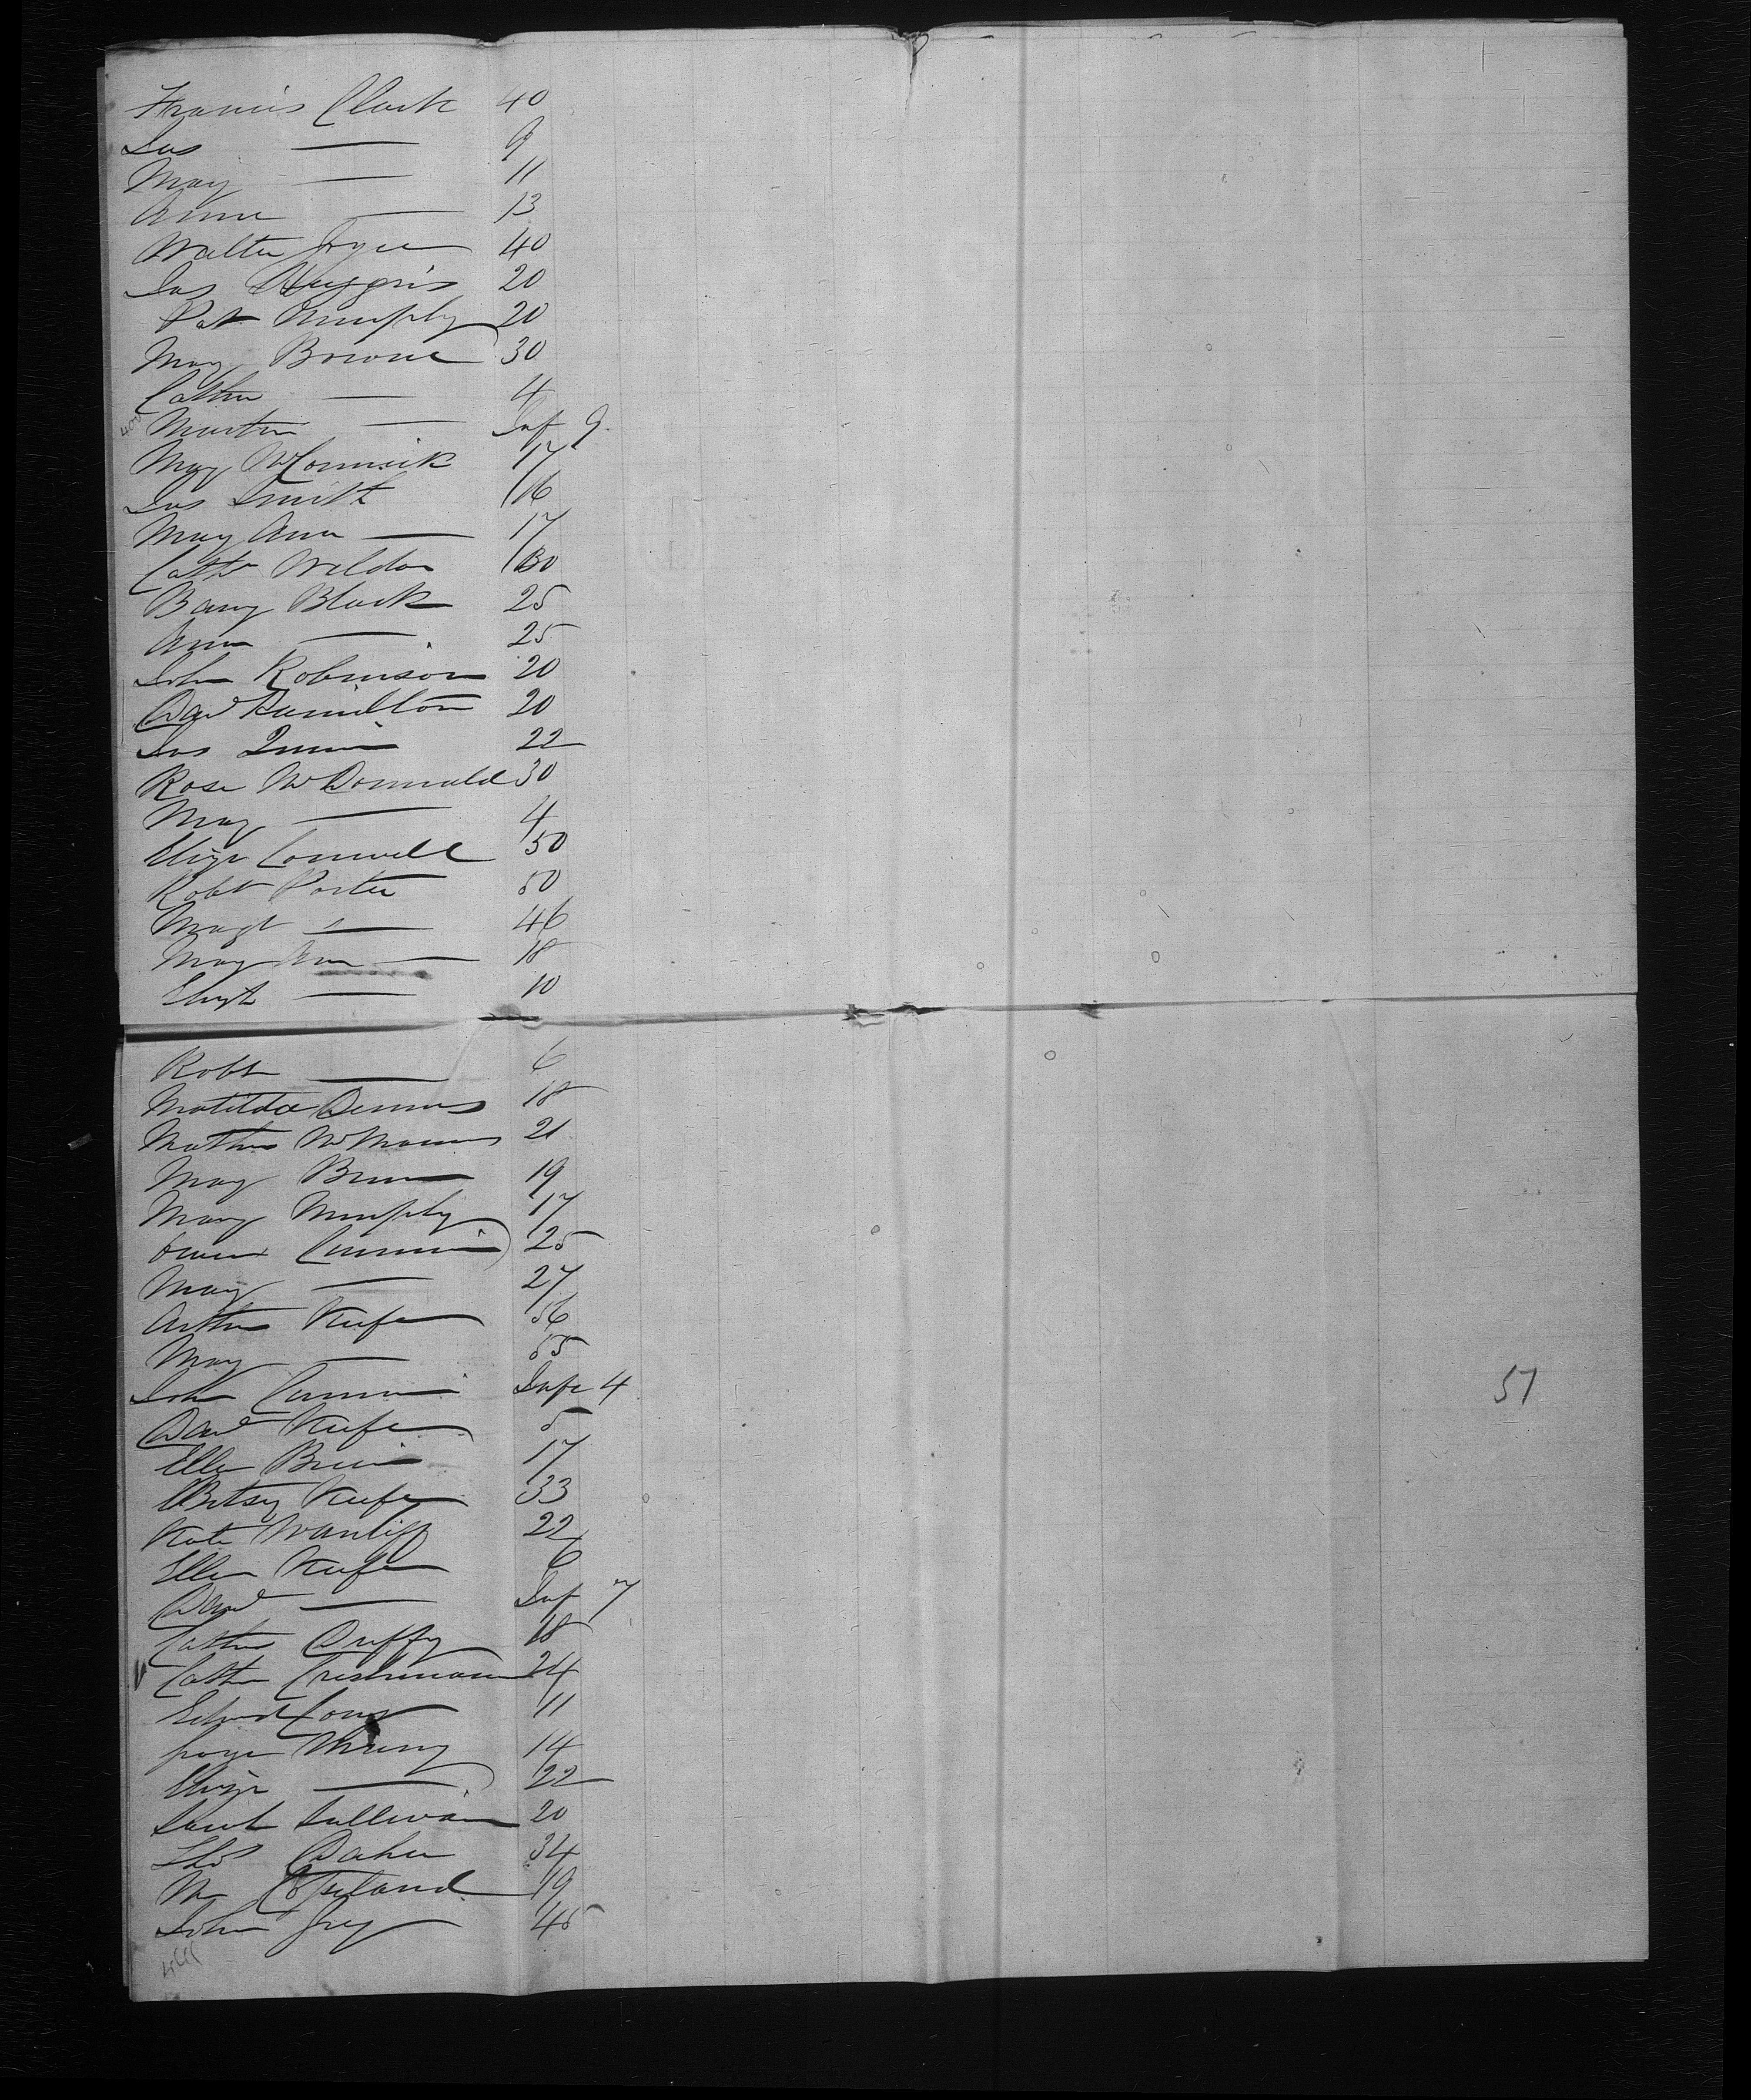 Francis Clark 40
Jas — 9
Mary — 11
Anne — 13
Walter Joyce 40
Jas Huggins 20
Pat Murphy 20
Mary Browne 30
Cathe — 4
Martin — Inf 9
Mary McCormick 17
Jas Smith 16
Mary Ann — 17
Cathe Weldon 30
Barry Black 25
Ann — 25
John Robinson 20
Davd Hamilton 20
Jas Quinn 22
Rose McDonnald 30
Mary — 4
Eliza Connell 50
Robt Porter 50
Magt — 46
Mary Ann — 18
Elizth — 10
Robt — 6
Matilda Dennis 18
Mathew McManus 21
Mary 19
Mary Murphy 17
Owen Cummin 25
Mary — 27
Arthur Keefe 56
Mary — 55
John Cummin Infc 4
Davd Keefe 5
Ellen 17
Betsy Keefe 33
Kate 22
Ellen Keefe 6
Davd — Inf 7
Cathe Duffy 18
Cathe 24
Edward 11
14
Eliza — 22
Sullivan 20
34
Wm Copeland 19
John Grey 45
51